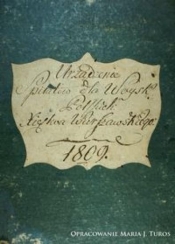 Urządzenie
Szpitalów dla Woysk
Polskich
Xięstwa Warszawskiego
1809.
OPRACOWANIE MARIA J. TUROS